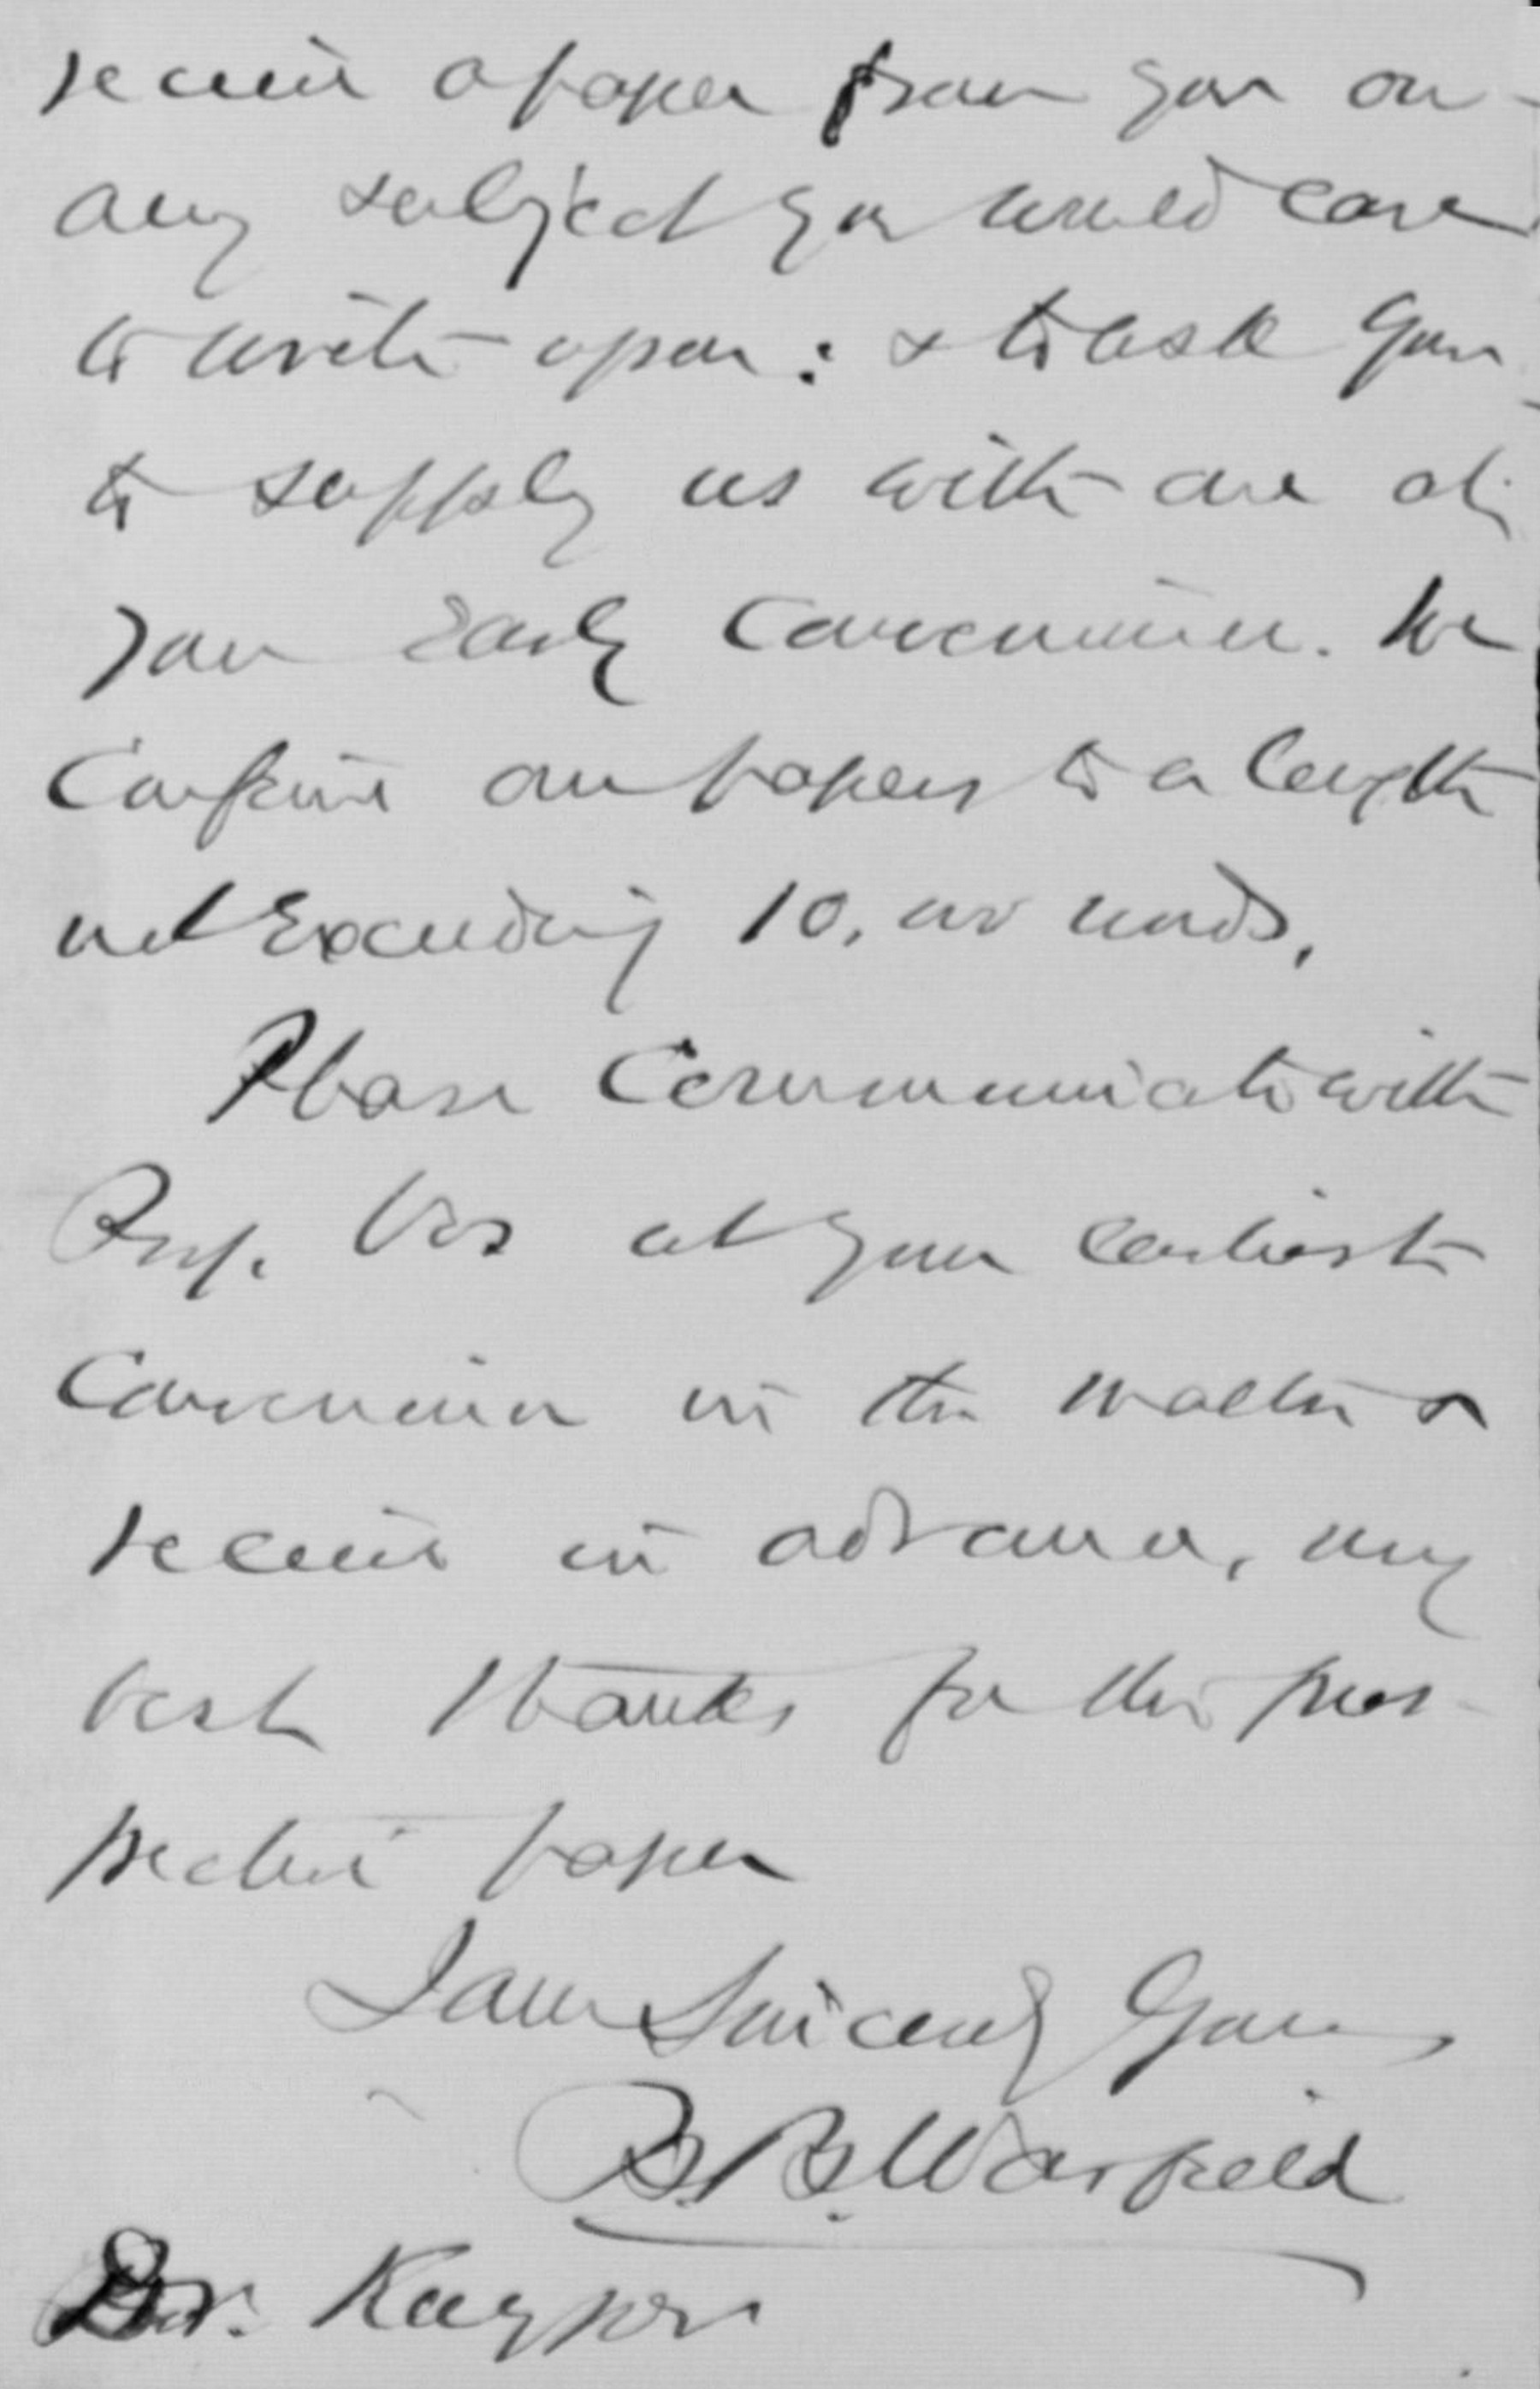 receive a paper from you on
any subject you would care
to write upon: & to ask you
to supply us with one at
your early convenience. We
confine our papers to a length
not exceeding 10,000 words.
Please communicate with
Prof. Vos at your earliest
convenience in the matter &
receive in advance, my
best thanks for the pros-
pective paper
I am Sincerely Yours
B. B. Warfield
Dr. Kuyper